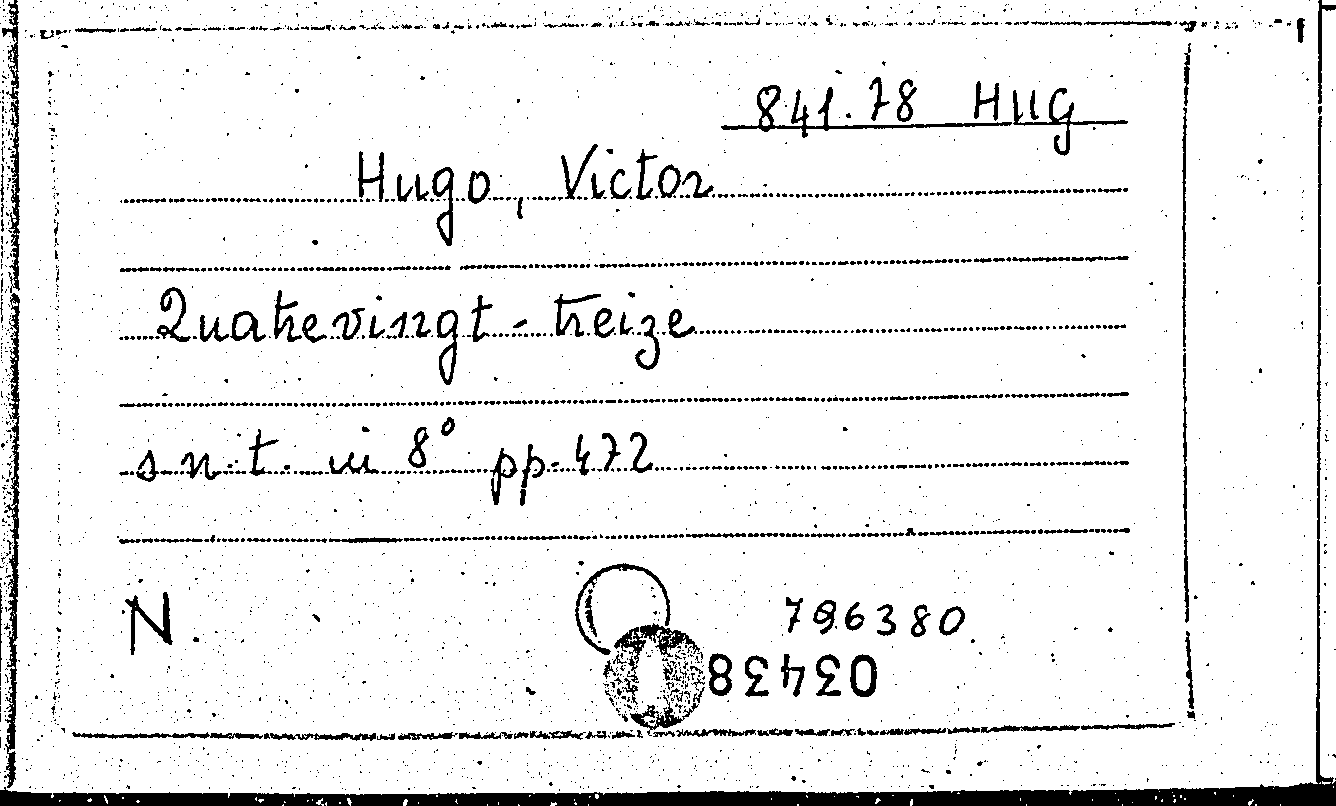 841.78 Hug
Hugo, Victor
Quatrevingt-treize
s.n.t. in 8° pp. 472
N.
796380
03438